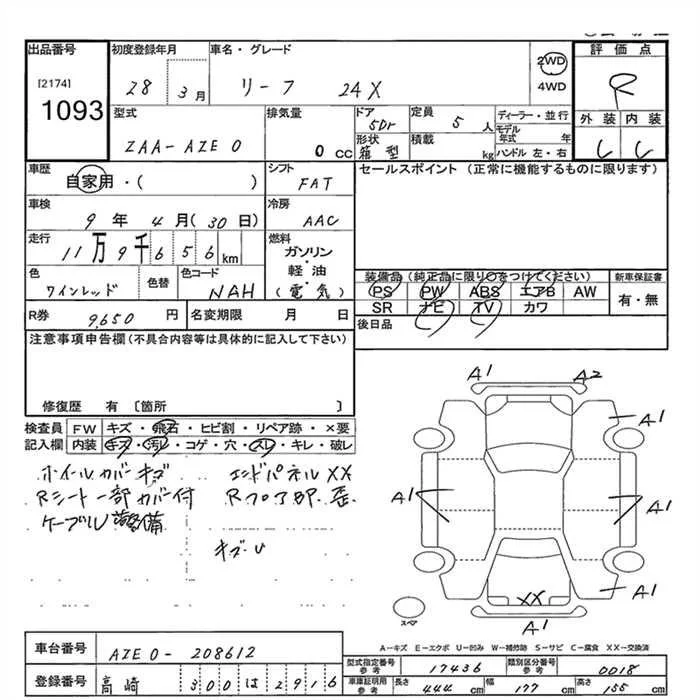 出品番号 初度登録年月 車名・グレード 評価点
[2174] 1093
28 3月 リーフ 24X 2WD 4WD R
型式 排気量 ドア 定員 ディーラー・並行 外装 内装
5Dr 5人 モデル年式 年
ZAA-AZE0 0cc 形状 箱型 積載 kg ハンドル 左・右 C C
車歴 シフト セールスポイント (正常に機能するものに限ります)
自家用・( ) FAT
車検 冷房
9年4月(30日) AAC
走行 燃料
11万9千656km ガソリン・軽油(電気)
色 色替 色コード 装備品 (純正品に限り○をつけてください) 新車保証書
ワインレッド NAH PS PW ABS エアB AW 有・無
R券 9,650円 名変期限 月 日 SR ナビ TV カワ
後日品
注意事項申告欄(不具合内容等は具体的に記入して下さい)
修復歴 有 〔箇所 〕
検査員 FW キズ・飛石・ヒビ割・リペア跡・×要
記入欄 内装 キズ・汚レ・コゲ・穴・スレ・キレ・破レ
ホイールカバーキズ エンドパネルXX
Rシート一部カバー付 Rフロア部 歪
ケーブル 装備
キズ・U
A1 A2
A1
A1 A1
A1
XX
A1
スペア
A-キズ E-エクボ U-凹み W-補修跡 S-サビ C-腐食 XX-交換済
車台番号 AZE0-208612
型式指定番号 参考 17436 類別区分番号 参考 0018
登録番号 高崎 300は2916
車庫証明用 参考 長さ 444cm 幅 177cm 高さ 155cm